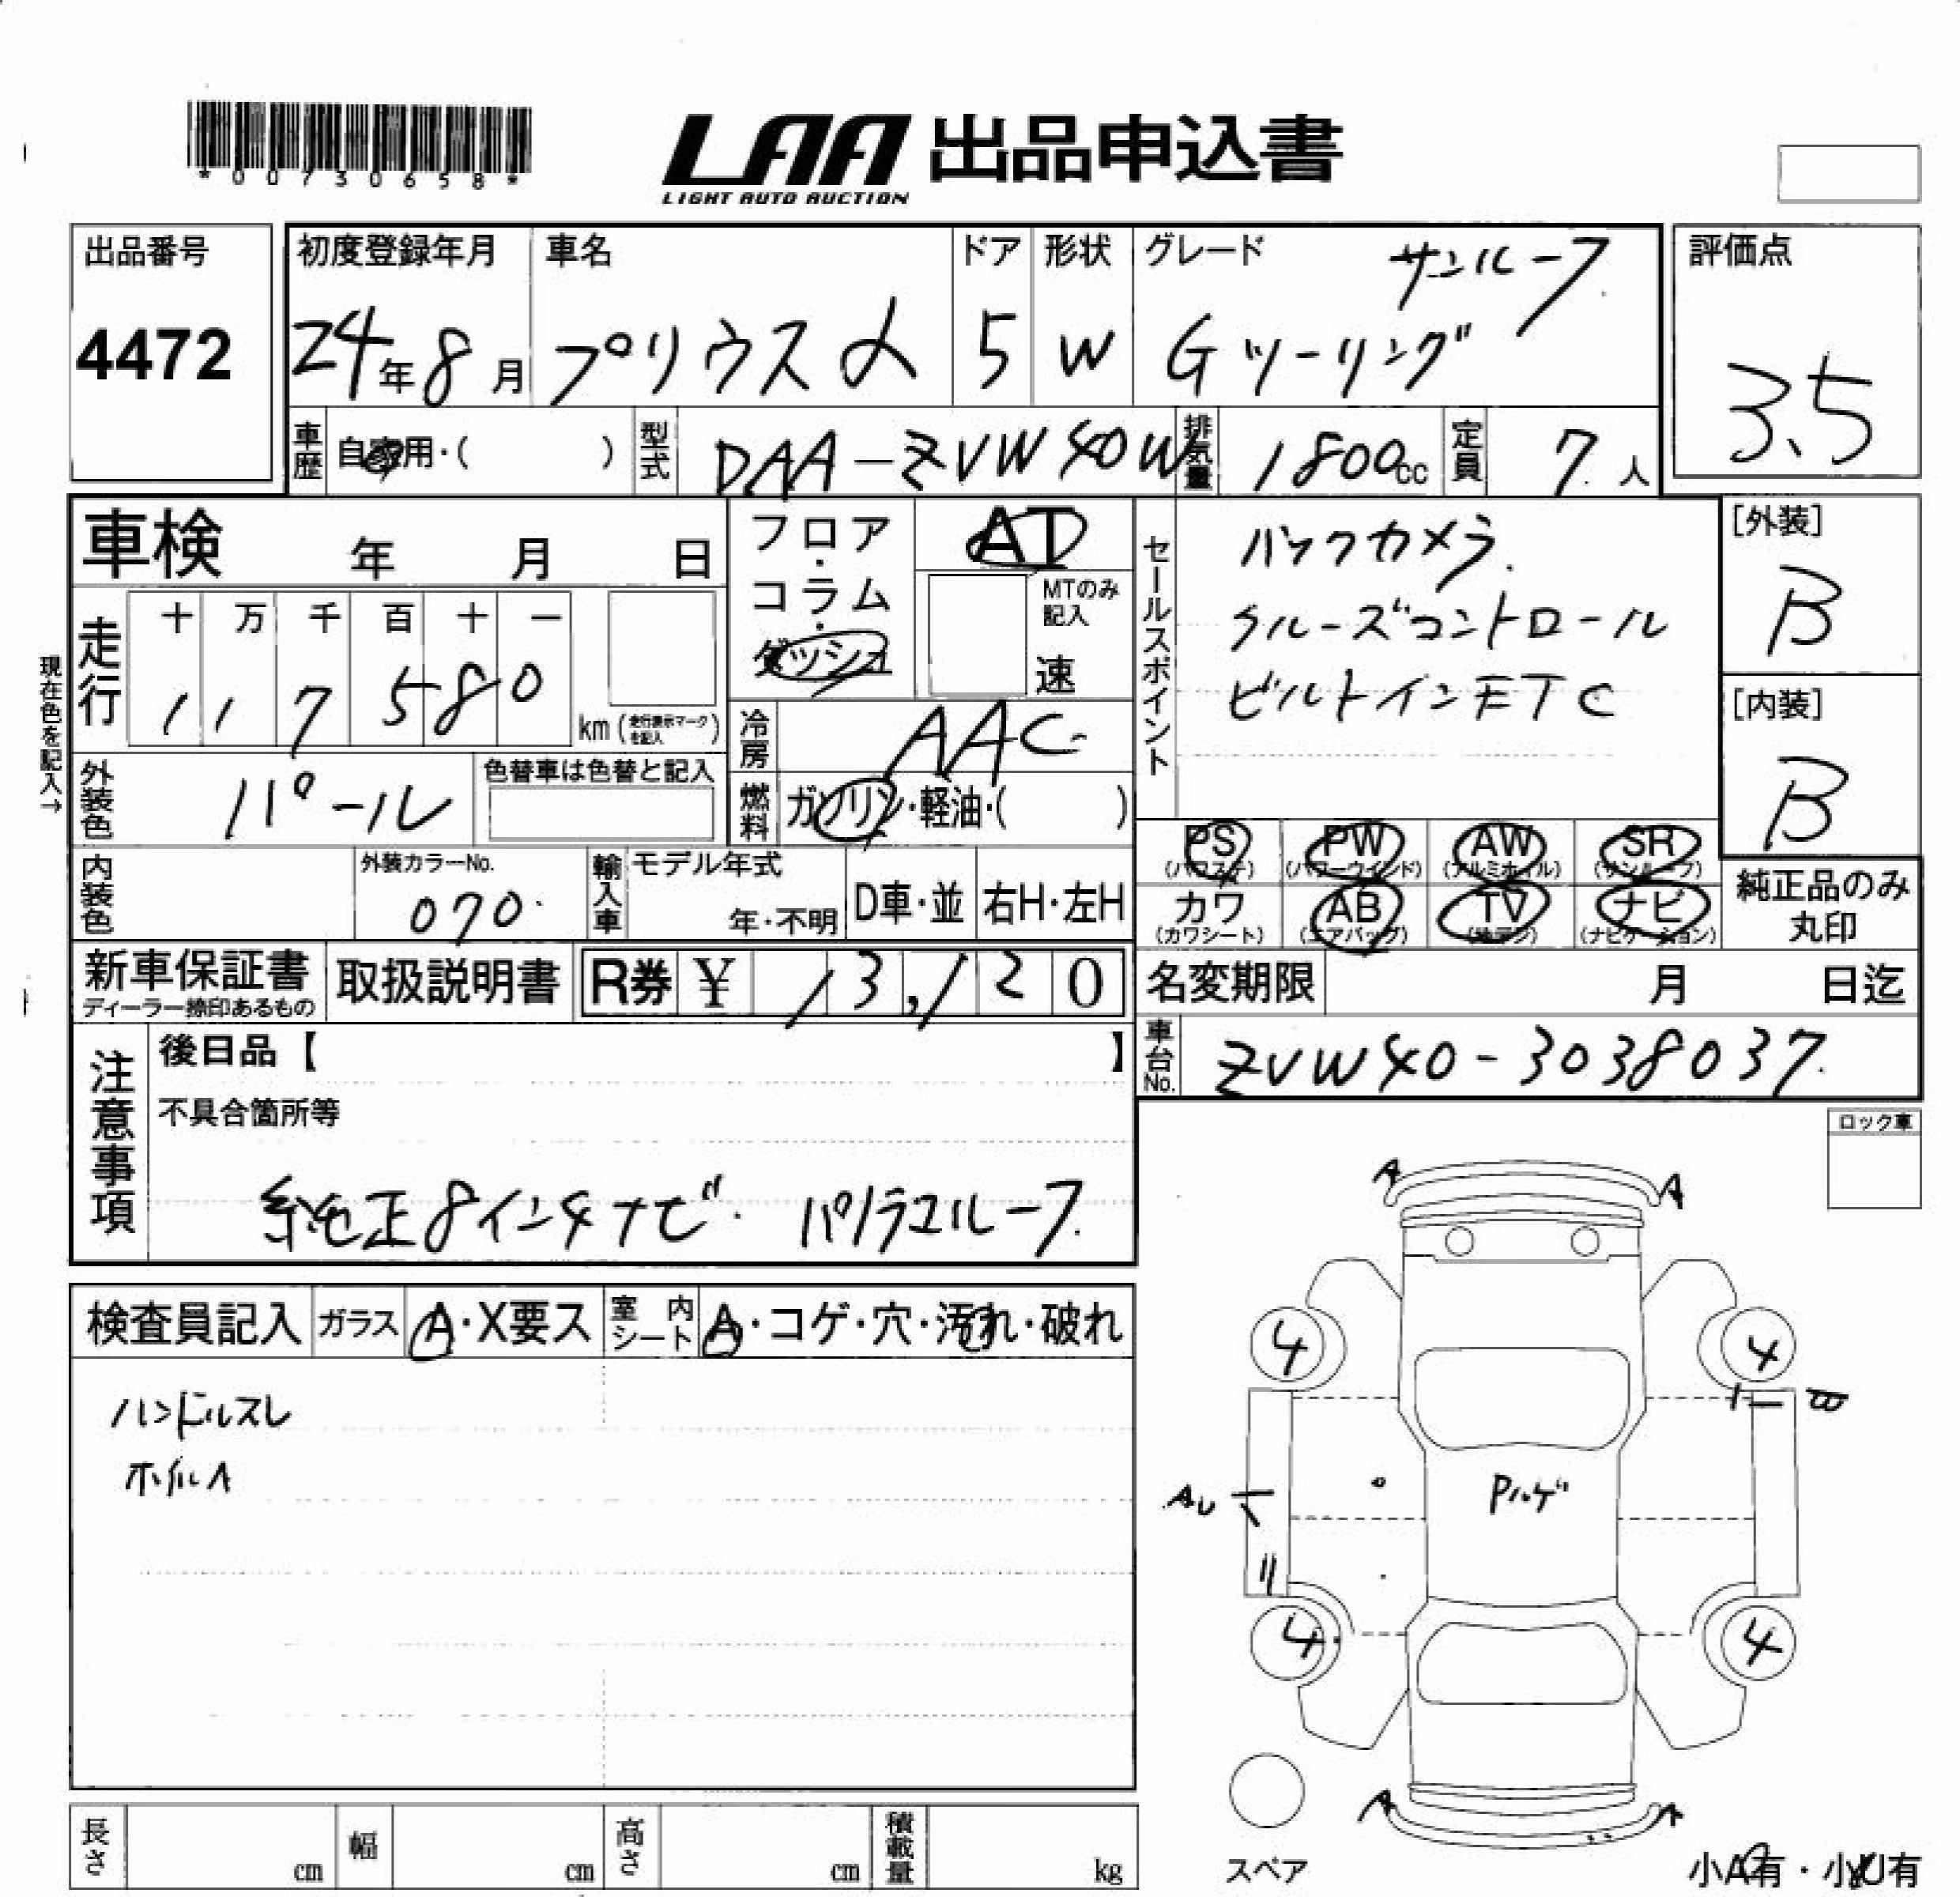 *00730658*
LAA 出品申込書
LIGHT AUTO AUCTION
出品番号
4472
初度登録年月
24年8月
車名
プリウスα
ドア
5
形状
W
グレード
サンルーフ
Gツーリング
評価点
3.5
車歴
自家用・( )
型式
DAA-ZVW40W
排気量
1800cc
定員
7人
車検 年 月 日
フロア・
コラム・
ダッシュ
AT
MTのみ記入
速
セールスポイント
バックカメラ
クルーズコントロール
ビルトインETC
[外装]
B
[内装]
B
現在色を記入→
走行
十 万 千 百 十 一
1 1 7 5 8 0
km (走行表示マークを記入)
冷房
AAC
燃料
ガソリン・軽油・( )
外装色
パール
色替車は色替と記入
PS (パワステ)
PW (パワーウインド)
AW (アルミホイル)
SR (サンルーフ)
カワ (カワシート)
AB (エアバッグ)
TV (地デジ)
ナビ (ナビゲーション)
純正品のみ
丸印
内装色
外装カラーNo.
070
輸入車
モデル年式
年・不明
D車・並
右H・左H
新車保証書
ディーラー捺印あるもの
取扱説明書
R券 ¥ 13,120
名変期限 月 日迄
車台No.
ZVW40-3038037
注意事項
後日品【 】
不具合箇所等
純正8インチナビ パノラマルーフ
ロック車
検査員記入
ガラス
A・X要ス
室内シート
A・コゲ・穴・汚れ・破れ
ハンドルスレ
ホイルA
A A
4 4
B
AU
Pハゲ
4 4
A A
スペア
小A有・小U有
長さ cm
幅 cm
高さ cm
積載量 kg